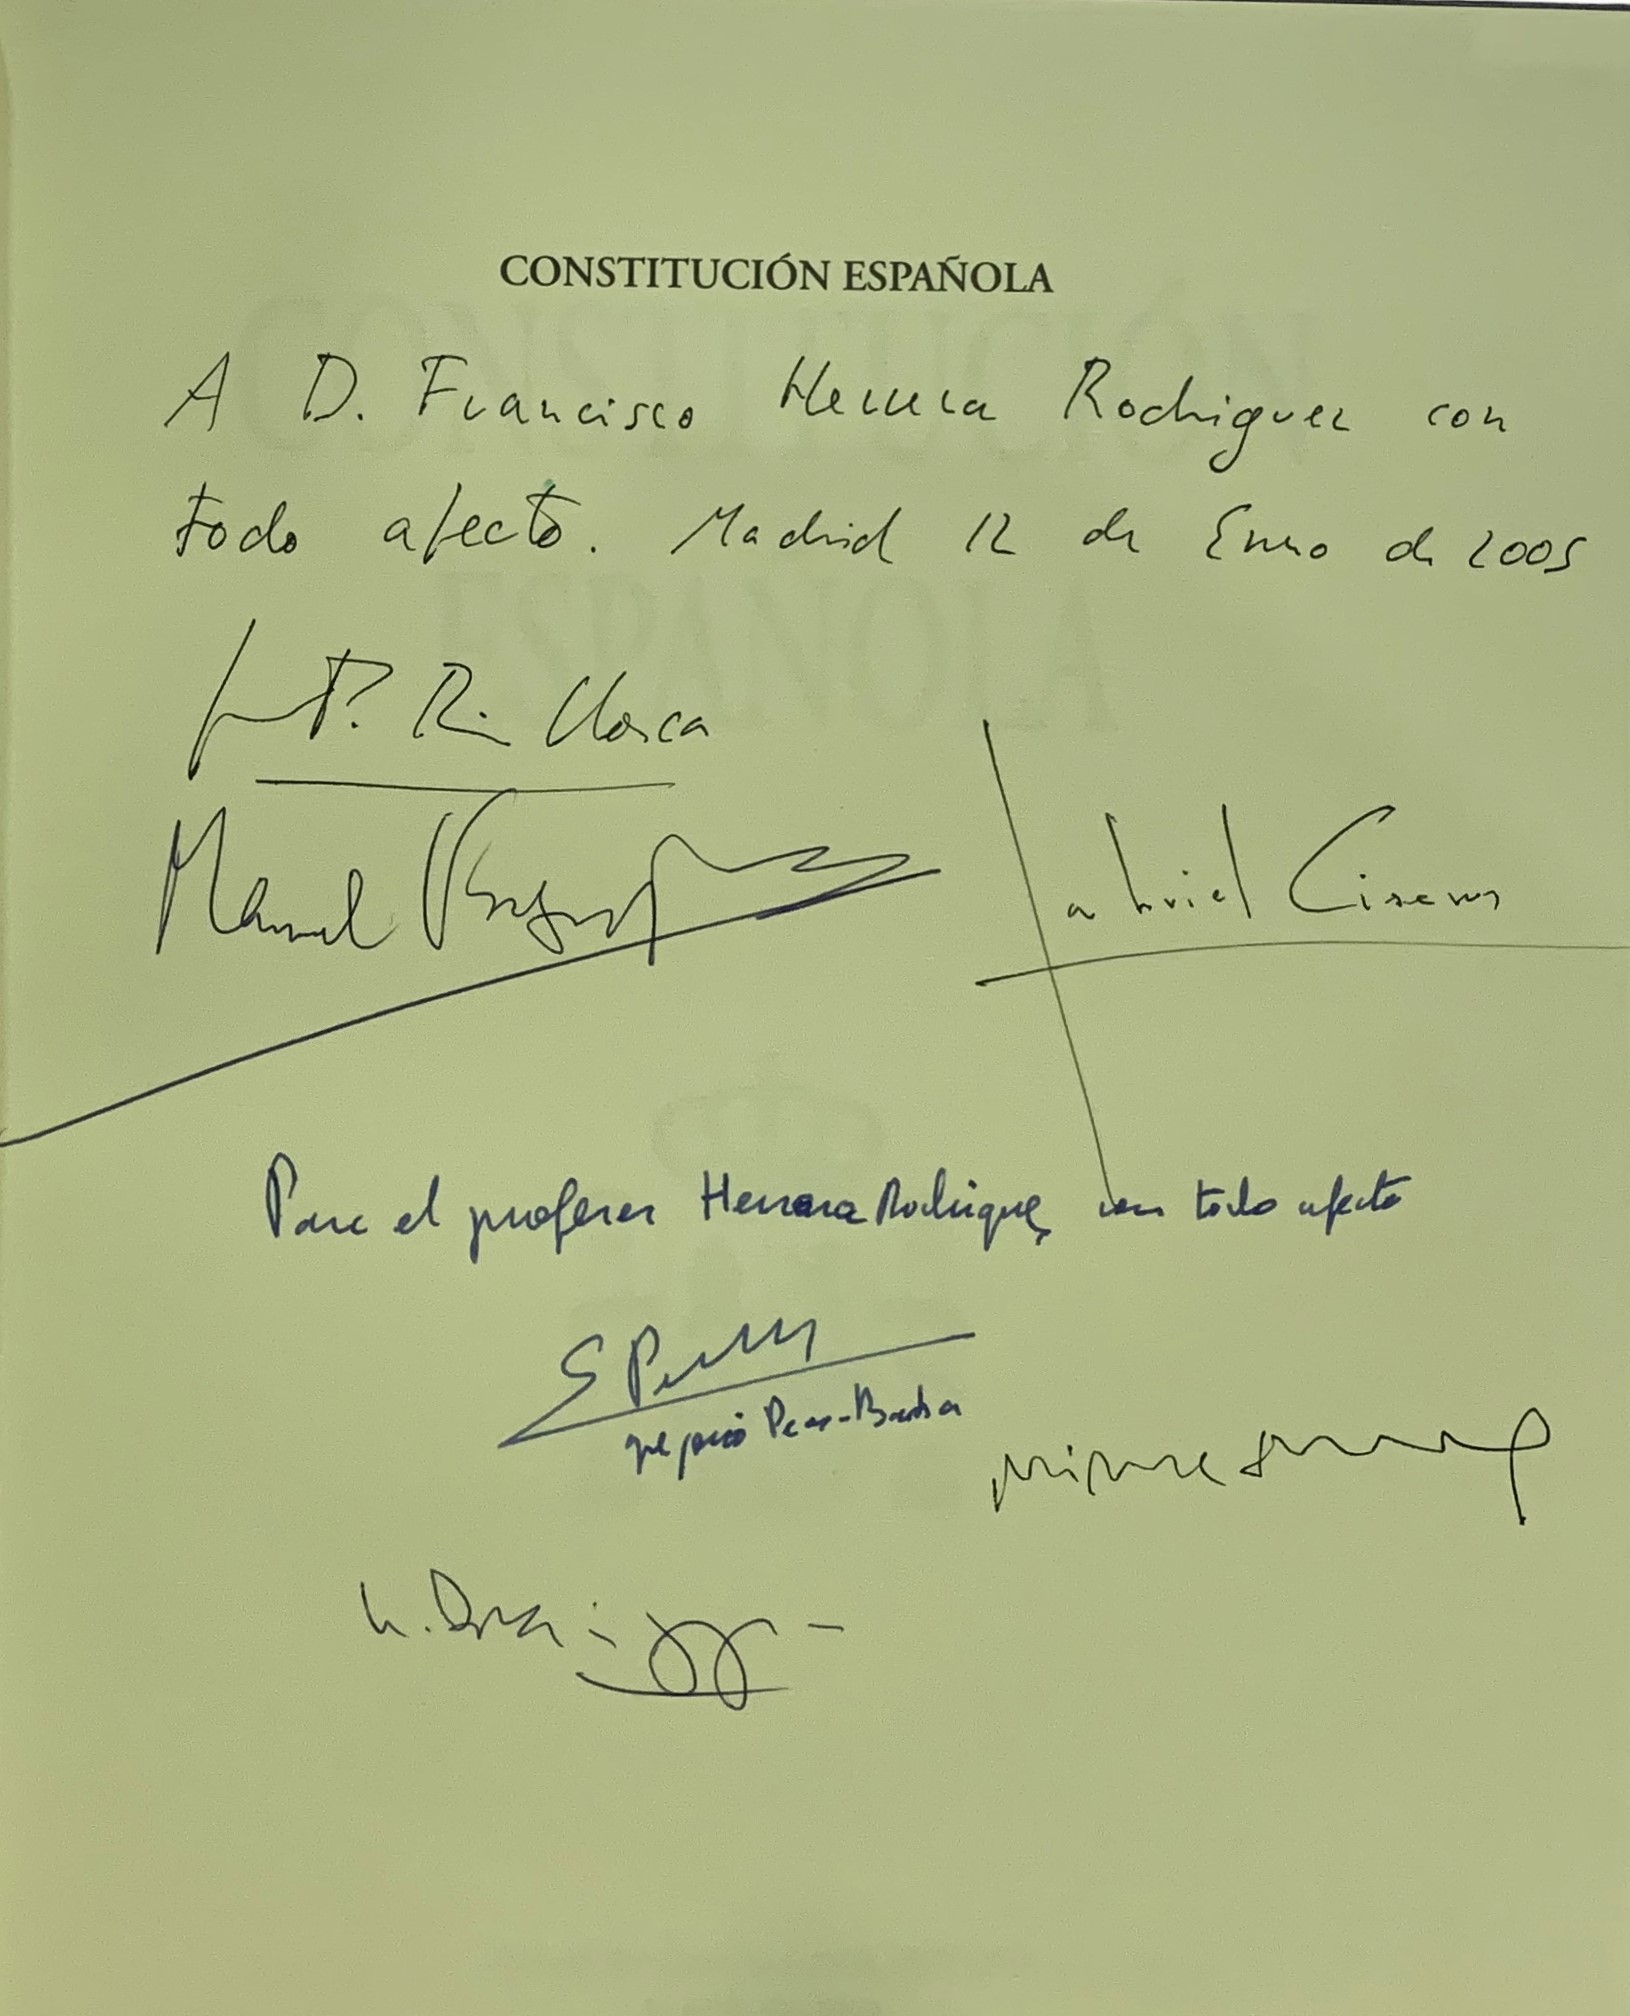 CONSTITUCIÓN ESPAÑOLA
A D. Francisco Herrera Rodriguez con
todo afecto. Madrid 12 de Enero de 2005
P. R. Llorca
Manuel
Gabriel Cisneros
Para el profesor Herrera Rodríguez con todo afecto
G Peces
gregorio Peces-Barba
CONSTITUCIÓN
ESPAÑOLA